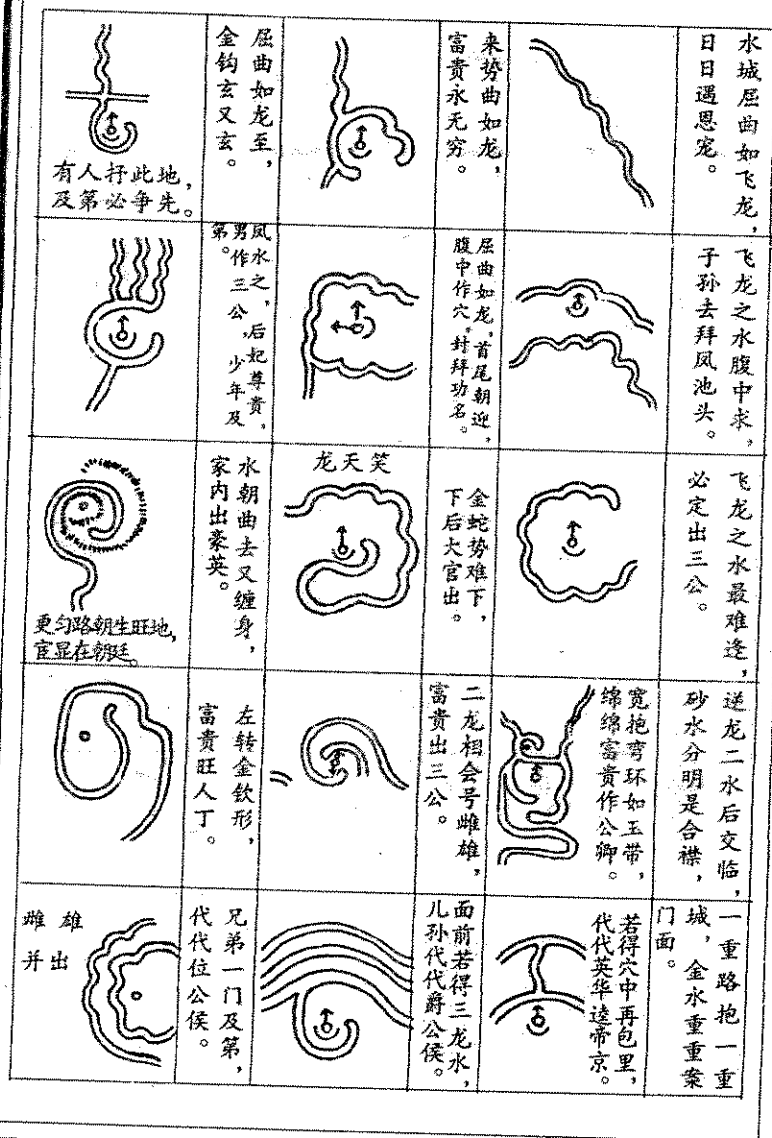 水城屈曲如飞龙，
日日遇恩宠。
来势曲如龙，
富贵永无穷。
屈曲如龙至，
金钩玄又玄。
有人扦此地，
及第必争先。
飞龙之水腹中求，
子孙去拜凤池头。
屈曲如龙，首尾朝迎，
腹中作穴，封拜功名。
凤水之，后妃尊贵，
男作三公，少年及
第。
飞龙之水最难逢，
必定出三公。
金蛇势难下，
下后大官出。
龙天笑
水朝曲去又缠身，
家内出豪英。
更匀路朝生旺地，
宦显在朝廷。
逆龙二水后交临，
砂水分明是合襟，
宽抱弯环如玉带，
绵绵富贵作公卿。
二龙相会号雌雄，
富贵出三公。
左转金钗形，
富贵旺人丁。
一重路抱一重
城，金水重重案
门面。
若得穴中再包里，
代代英华逵帝京。
面前若得三龙水，
儿孙代代爵公侯。
兄弟一门及第，
代代位公侯。
雌雄
并出